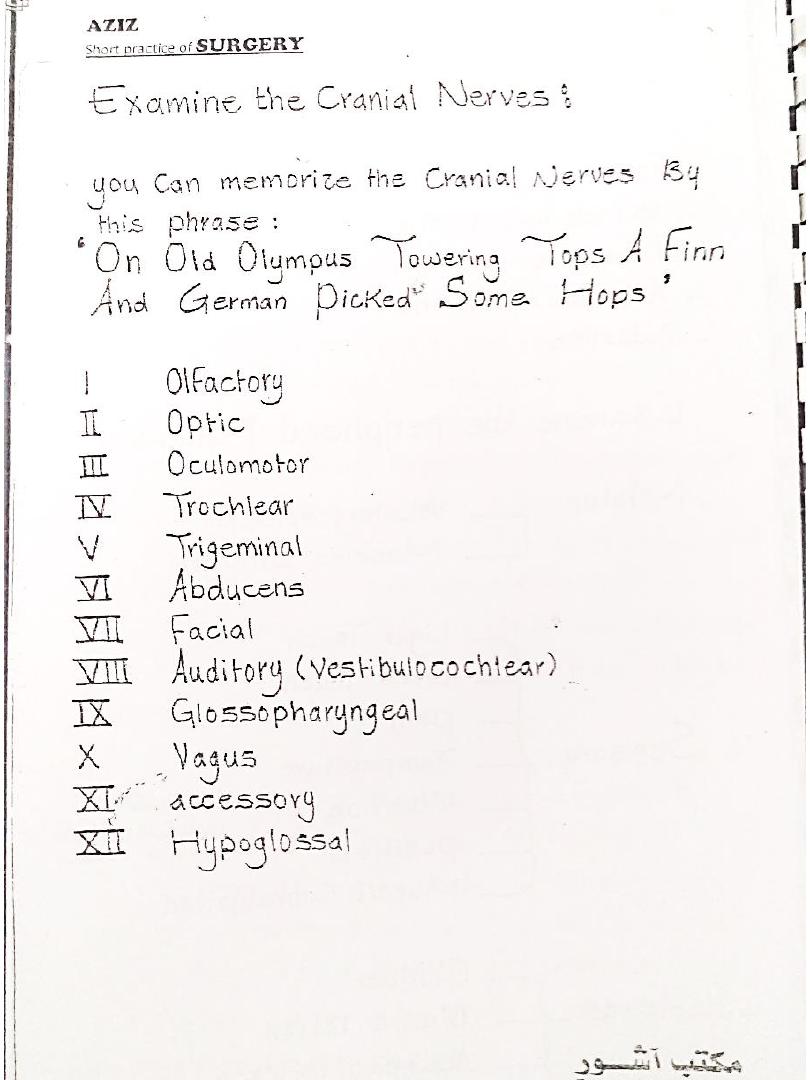 AZIZ
Short practice of SURGERY
Examine the Cranial Nerves :
you Can memorize the Cranial Nerves By
this phrase :
‘On Old Olympus Towering Tops A Finn
And German Picked Some Hops’
I Olfactory
II Optic
III Oculomotor
IV Trochlear
V Trigeminal
VI Abducens
VII Facial
VIII Auditory (Vestibulocochlear)
IX Glossopharyngeal
X Vagus
XI accessory
XII Hypoglossal
مكتب آشور